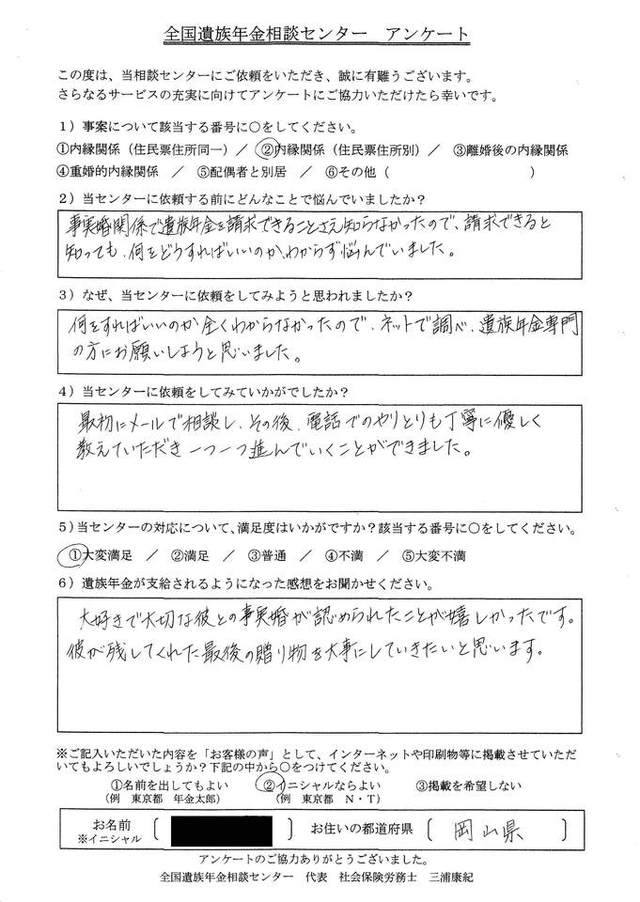 全国遺族年金相談センター　アンケート
この度は、当相談センターにご依頼をいただき、誠に有難うございます。
さらなるサービスの充実に向けてアンケートにご協力いただけたら幸いです。
1）事案について該当する番号に○をしてください。
①内縁関係（住民票住所同一）／　②内縁関係（住民票住所別）／　③離婚後の内縁関係
④重婚的内縁関係　／　⑤配偶者と別居　／　⑥その他（　　　　　　　　　）
2）当センターに依頼する前にどんなことで悩んでいましたか？
事実婚関係で遺族年金を請求できることさえ知らなかったので、請求できると
知っても、何をどうすればいいのか、わからず悩んでいました。
3）なぜ、当センターに依頼をしてみようと思われましたか？
何をすればいいのか全くわからなかったので、ネットで調べ、遺族年金専門
の方にお願いしようと思いました。
4）当センターに依頼をしてみていかがでしたか？
最初にメールで相談し、その後、電話でのやりとりも丁寧に優しく
教えていただき一つ一つ進んでいくことができました。
5）当センターの対応について、満足度はいかがですか？該当する番号に○をしてください。
①大変満足　／　②満足　／　③普通　／　④不満　／　⑤大変不満
6）遺族年金が支給されるようになった感想をお聞かせください。
大好きで大切な彼との事実婚が認められたことが嬉しかったです。
彼が残してくれた最後の贈り物を大事にしていきたいと思います。
※ご記入いただいた内容を「お客様の声」として、インターネットや印刷物等に掲載させていただ
いてもよろしいでしょうか？下記の中から○をつけてください。
①名前を出してもよい　②イニシャルならよい　③掲載を希望しない
（例　東京都　年金太郎）　（例　東京都　N・T）
お名前　お住いの都道府県（　岡山県　）
※イニシャル
アンケートのご協力ありがとうございました。
全国遺族年金相談センター　代表　社会保険労務士　三浦康紀